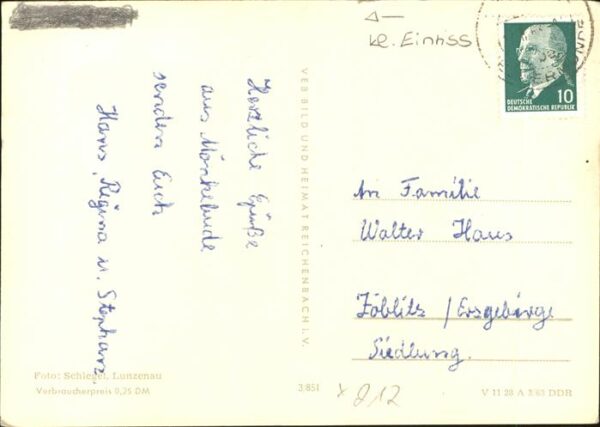 kl. Einriss
DEUTSCHE
DEMOKRATISCHE REPUBLIK
10
Herzliche Grüße
aus Mönkebude
senden Euch
Hans, Regina u. Stephan.
VEB BILD UND HEIMAT REICHENBACH I. V.
An Familie
Walter Haus
Zöblitz / Erzgebirge
Siedlung.
Foto: Schlegel, Lunzenau
Verbraucherpreis 0,25 DM
3/851
x 212
V 11 28 A 3/63 DDR